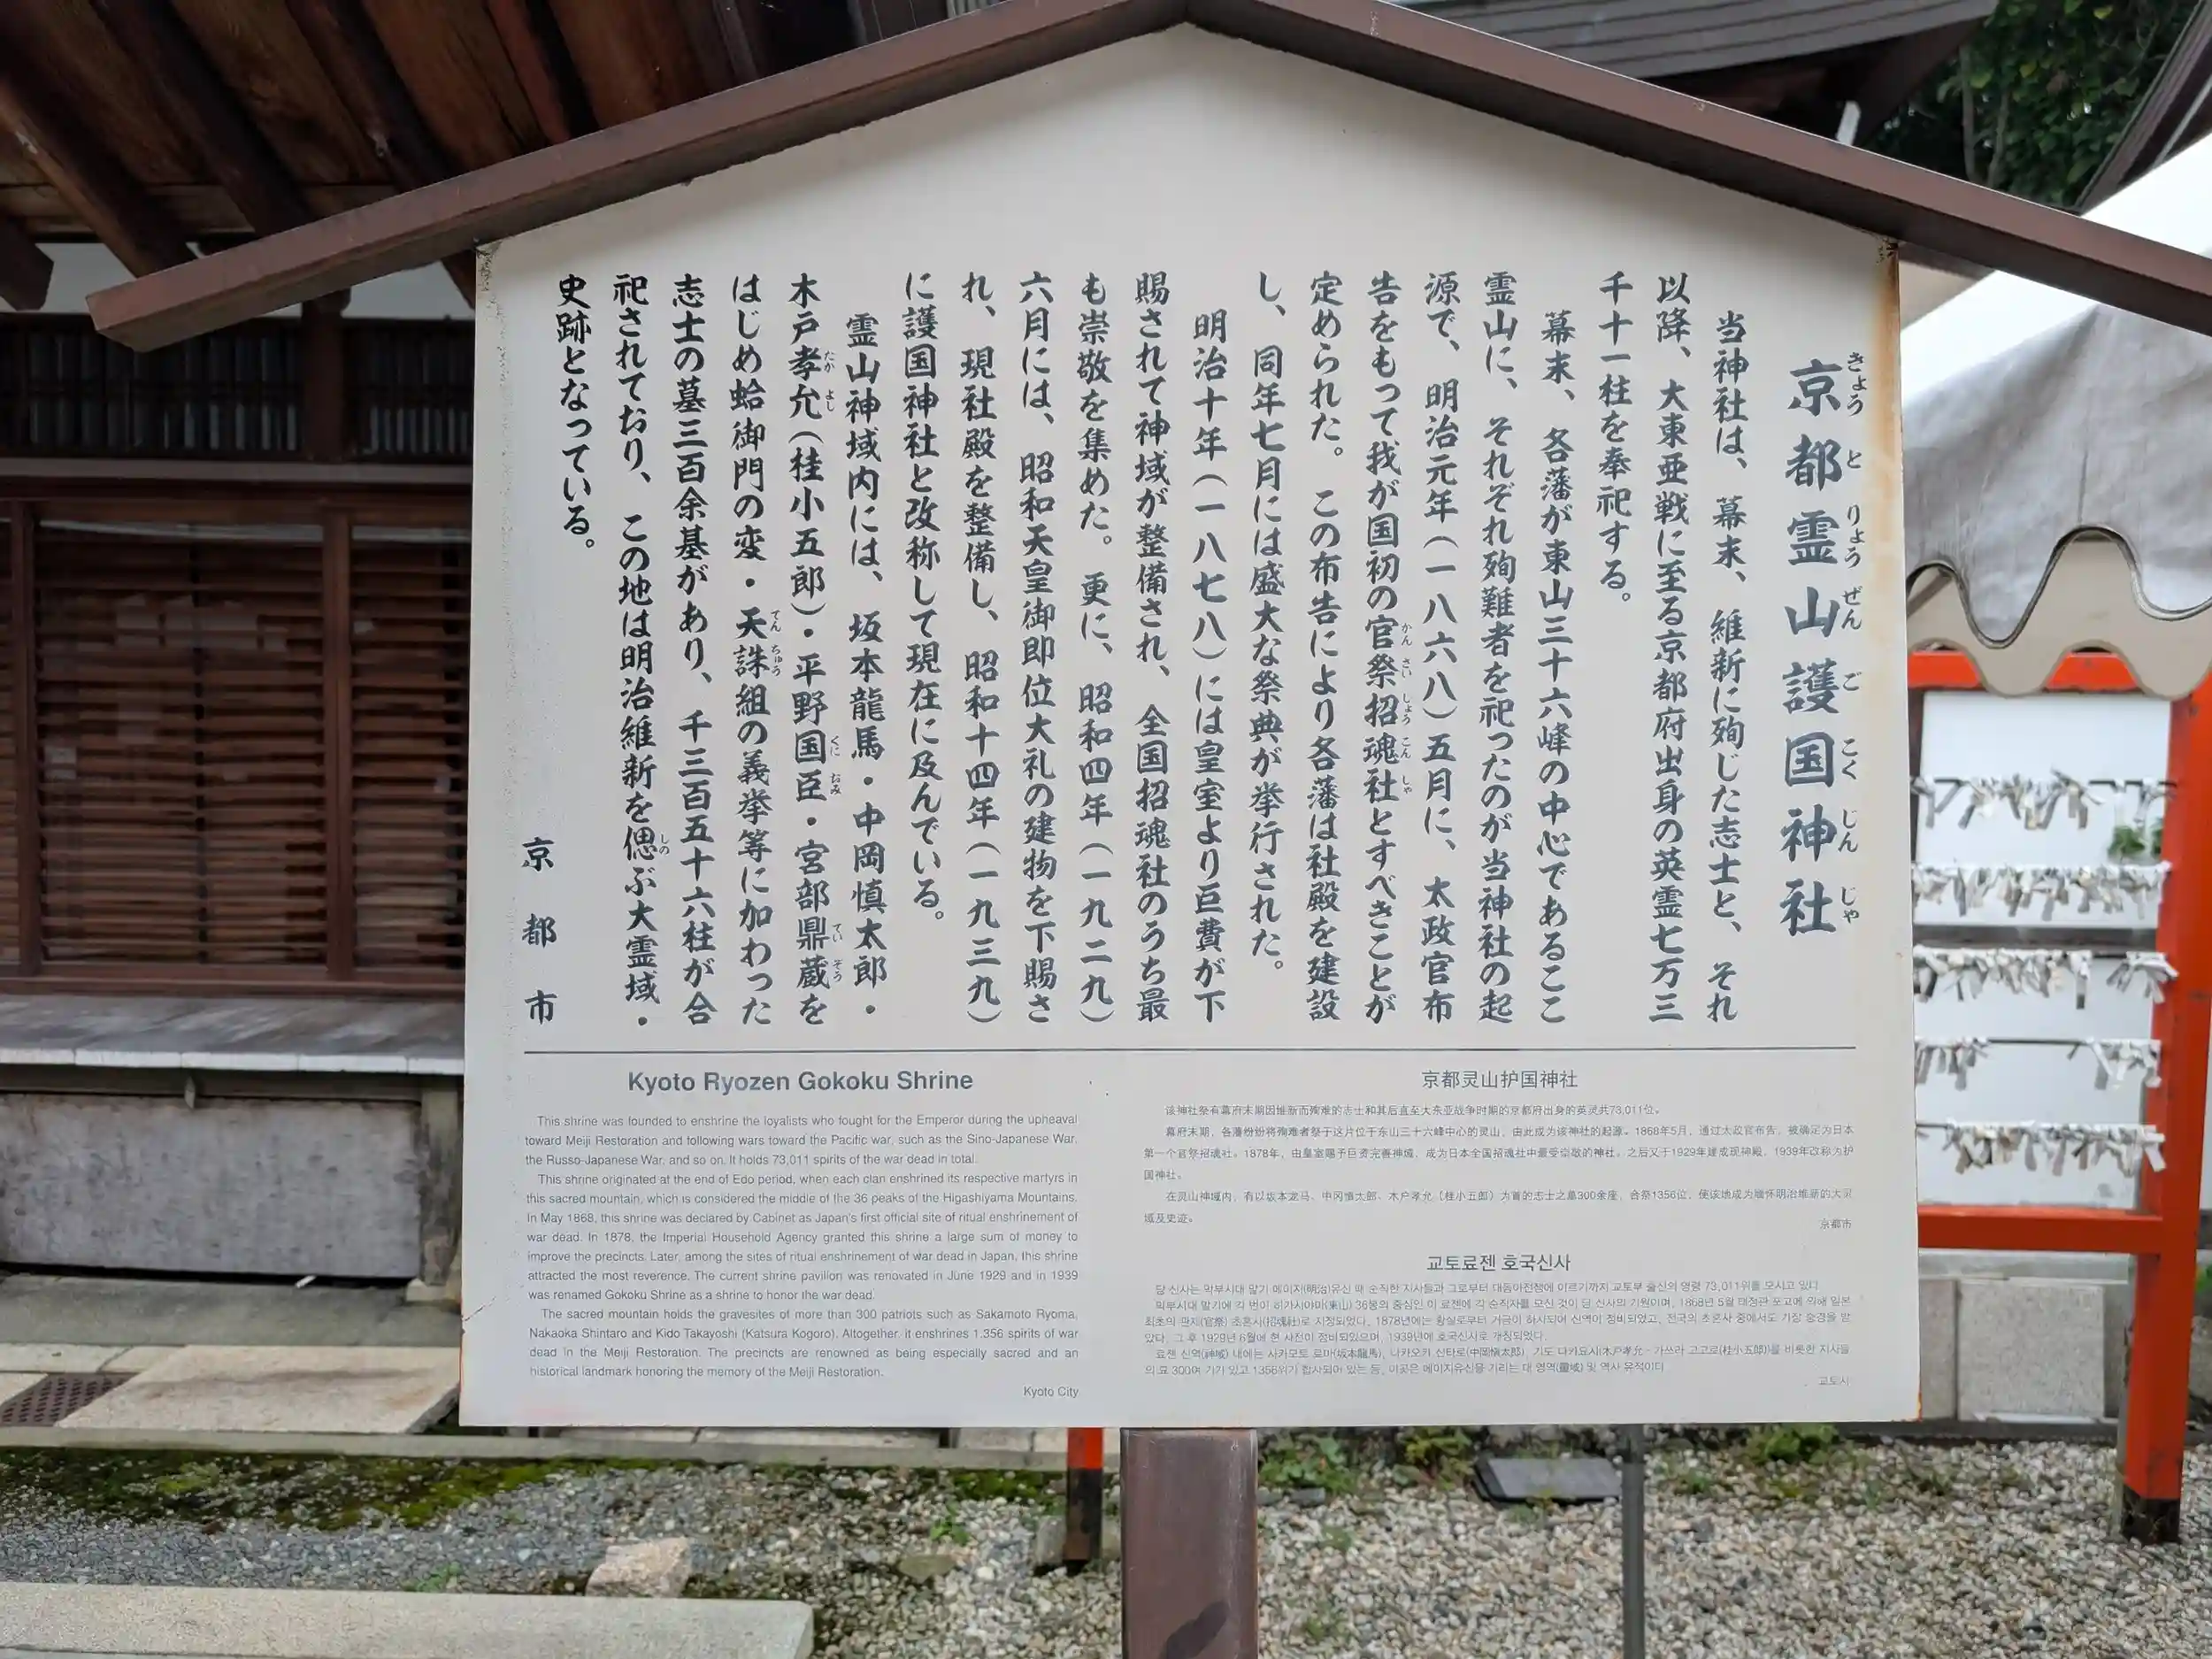 京都霊山護国神社
きょうとりょうぜんごこくじんじゃ
当神社は、幕末、維新に殉じた志士と、それ
以降、大東亜戦に至る京都府出身の英霊七万三
千十一柱を奉祀する。
幕末、各藩が東山三十六峰の中心であるここ
霊山に、それぞれ殉難者を祀ったのが当神社の起
源で、明治元年(一八六八)五月に、太政官布
告をもって我が国初の官祭招魂社とすべきことが
かんさいしょうこんしゃ
定められた。この布告により各藩は社殿を建設
し、同年七月には盛大な祭典が挙行された。
明治十年(一八七八)には皇室より巨費が下
賜されて神域が整備され、全国招魂社のうち最
も崇敬を集めた。更に、昭和四年(一九二九)
六月には、昭和天皇御即位大礼の建物を下賜さ
れ、現社殿を整備し、昭和十四年(一九三九)
に護国神社と改称して現在に及んでいる。
霊山神域内には、坂本龍馬・中岡慎太郎・
木戸孝允(桂小五郎)・平野国臣・宮部鼎蔵を
たかよし くにおみ ていぞう
はじめ蛤御門の変・天誅組の義挙等に加わった
てんちゅう
志士の墓三百余基があり、千三百五十六柱が合
祀されており、この地は明治維新を偲ぶ大霊域・
しの
史跡となっている。
京都市
Kyoto Ryozen Gokoku Shrine
This shrine was founded to enshrine the loyalists who fought for the Emperor during the upheaval
toward Meiji Restoration and following wars toward the Pacific war, such as the Sino-Japanese War,
the Russo-Japanese War, and so on. It holds 73,011 spirits of the war dead in total.
This shrine originated at the end of Edo period, when each clan enshrined its respective martyrs in
this sacred mountain, which is considered the middle of the 36 peaks of the Higashiyama Mountains.
In May 1868, this shrine was declared by Cabinet as Japan's first official site of ritual enshrinement of
war dead. In 1878, the Imperial Household Agency granted this shrine a large sum of money to
improve the precincts. Later, among the sites of ritual enshrinement of war dead in Japan, this shrine
attracted the most reverence. The current shrine pavilion was renovated in June 1929 and in 1939
was renamed Gokoku Shrine as a shrine to honor the war dead.
The sacred mountain holds the gravesites of more than 300 patriots such as Sakamoto Ryoma,
Nakaoka Shintaro and Kido Takayoshi (Katsura Kogoro). Altogether, it enshrines 1,356 spirits of war
dead in the Meiji Restoration. The precincts are renowned as being especially sacred and an
historical landmark honoring the memory of the Meiji Restoration.
Kyoto City
京都灵山护国神社
该神社祭有幕府末期因维新而殉难的志士和其后直至大东亚战争时期的京都府出身的英灵共73,011位。
幕府末期，各藩纷纷将殉难者祭于这片位于东山三十六峰中心的灵山，由此成为该神社的起源。1868年5月，通过太政官布告，被确定为日本
第一个官祭招魂社。1878年，由皇室赐予巨资完善神域，成为日本全国招魂社中最受崇敬的神社。之后又于1929年建成现神殿，1939年改称为护
国神社。
在灵山神域内，有以坂本龙马、中冈慎太郎、木户孝允（桂小五郎）为首的志士之墓300余座，合祭1356位，使该地成为缅怀明治维新的大灵
域及史迹。
京都市
교토료젠 호국신사
당 신사는 막부시대 말기 메이지(明治)유신 때 순직한 지사들과 그로부터 대동아전쟁에 이르기까지 교토부 출신의 영령 73,011위를 모시고 있다.
막부시대 말기에 각 번이 히가시야마(東山) 36봉의 중심인 이 료젠에 각 순직자를 모신 것이 당 신사의 기원이며, 1868년 5월 태정관 포고에 의해 일본
최초의 관제(官祭) 초혼사(招魂社)로 지정되었다. 1878년에는 황실로부터 거금이 하사되어 신역이 정비되었고, 전국의 초혼사 중에서도 가장 숭경을 받
았다. 그 후 1929년 6월에 현 사전이 정비되었으며, 1939년에 호국신사로 개칭되었다.
료젠 신역(神域) 내에는 사카모토 료마(坂本龍馬), 나카오카 신타로(中岡愼太郎), 기도 다카요시(木戸孝允·가쓰라 고고로(桂小五郎))를 비롯한 지사들
의 묘 300여 기가 있고 1356위가 합사되어 있는 등, 이곳은 메이지유신을 기리는 대 영역(靈域) 및 역사 유적이다.
교토시